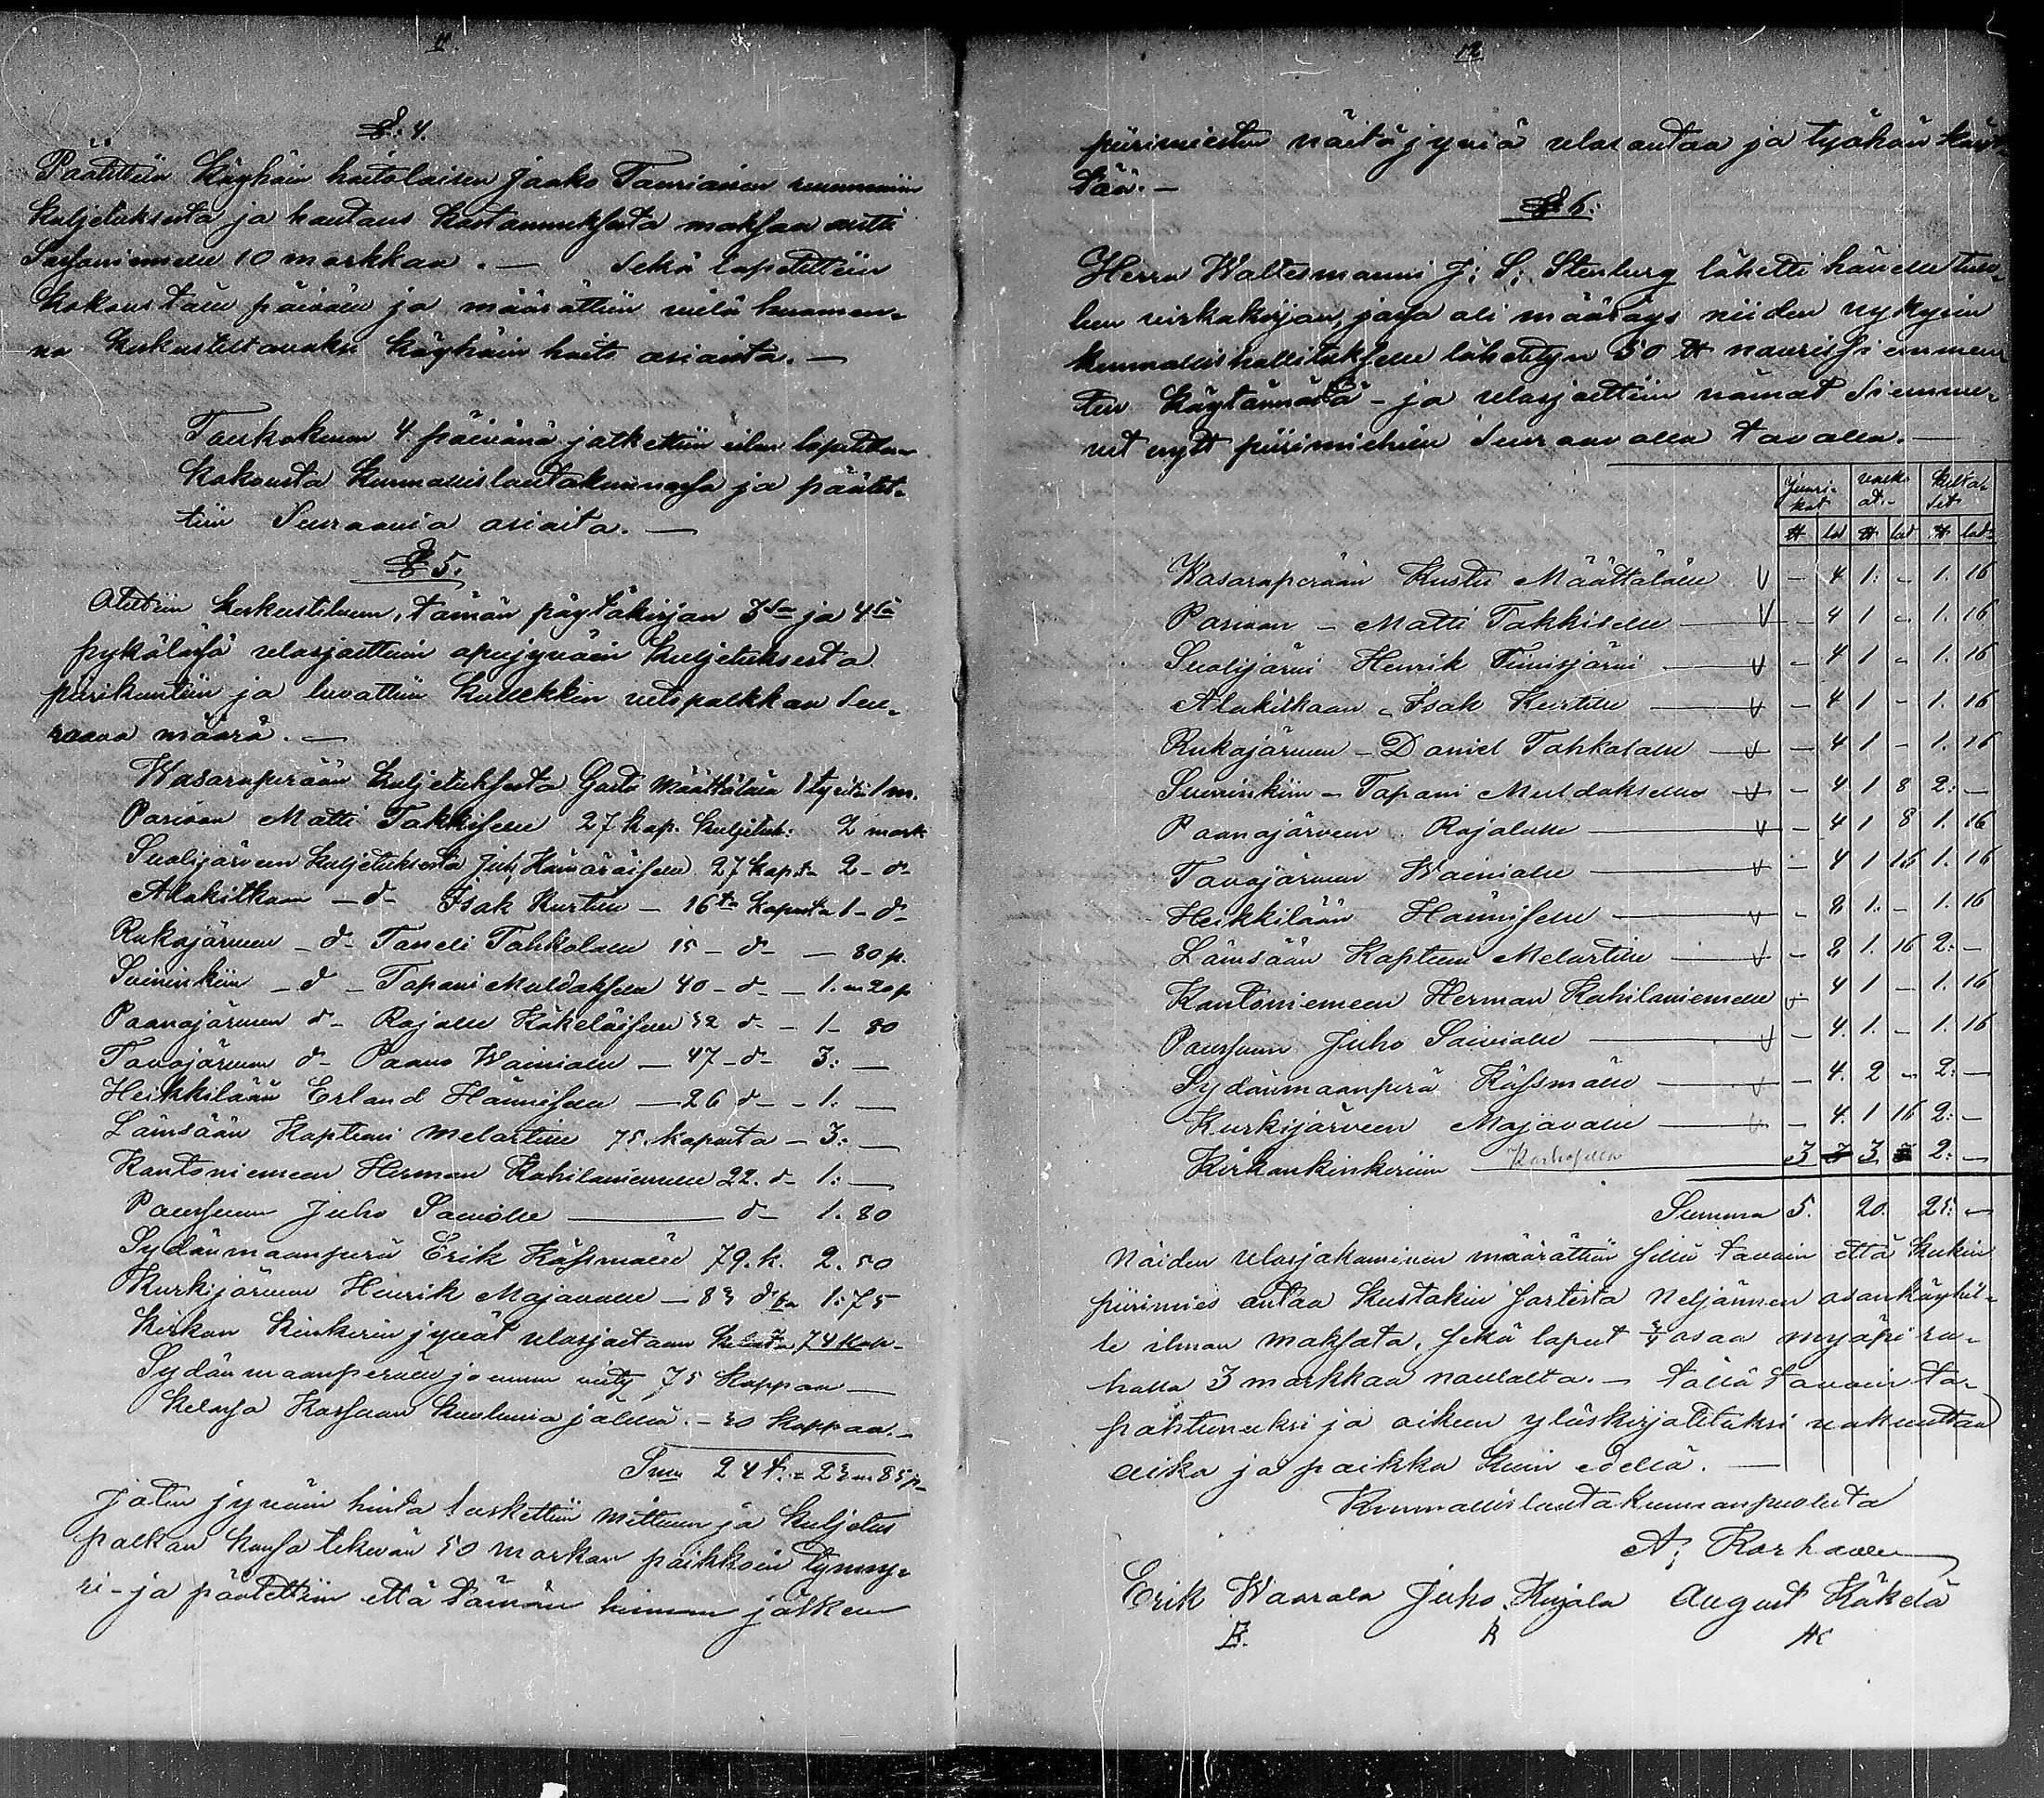 11.
§: 4.
Päätettiin Käyhäin hoitolaisen Jaako Taurianen ruummiin
Kuljetuksesta ja hautaus Kostannuksesta maksaa
10 markkaa. — Sekä lopetettiin
kokous tällä päivällä ja määrättiin vielä huomen-
na Keskusteltavaksi Käyhäin hoito asioista. —
Toukokuun 4. päivänä jatkettiin eilen lopetettua
Kokousta Kunnallislautakunnassa ja päätet-
tiin Seuraavia asioita. —
§: 5.
Otettiin keskusteluun, tämän pöytäkirjan 3sa ja 4sä
pykälässä ulosjaettuin apujyväin Kuljetuksesta
piirikuntiin ja luvattiin Kullekkin vetopalkkaa Seu-
raava määrä. —
Wasaraperään Kuljetuksesta Gusta Määttälälle 1 tynöri 1 m.
Posioon Matti Takkiselle 27 kap. Kuljetuk: 2 mark
Suolijärveen Kuljetuksesta Juh, Hämäräiselle 27 kap:ta 2 - d-
Alakitkaan - d- Isak Kurtille - 16ta Kapasta 1 - d-
Rukajärveen - d- Taneli Tahkolalle 15 - d- — 80 p.
Suininkiin - d - Tapani Muldakselle 40 - d- — 1. m 20 p
Paanajärveen d- Rajalle Käkeläiselle 32 d- - 1 - 80
Tavajärveen d- Paavo Wainiolle — 47 - d- 3: —
Heikkilään Erland Hännisellen — 26 d- - 1. —
Lämsään Kapteini Melartille 75. kapasta - 3: —
Kantoniemeen Herman Kohilaniemelle 22. d- 1: —
Pousuun Juho Sainiolle ——— d- 1. 80
Sydänmaanperä Erik Kässmälle 79. k. 2. 50
Kurkijärveen Henrik Majavalle - 83 d 1: 75
Kirkon Kinkerin jyvät ulosjaetaan 74 kap-
Sydänmaanperälle jo ennen viety 75 kappaa —
Kelassa Karhuan Kuolemia jälellä. - 30 kappaa. -
Sma 24 t: = 23 m 85 p-
Joten jyväin hinta laskettiin mittuun ja Kuljetus
palkan kansa tekevän 50 markan paikkoin tynny-
ri - ja päätettiin että tämän hinnan jälkeen
12
piirimiesten näitä jyviä ulosantaa ja työhön käyt-
tää. —
§ 6:
Herra Waltesmanni J: S: Stenberg lähetti hänelle tul-
leen virkakirjan, jossa oli määräys niiden nykysin
kunnallishallitukselle lähetetyn 50 ℔ naurissiemmen
ten Käytännöstä - ja ulosjaettiin nämät Siemme-
net nytt piirimiehiin Seuraavalla tavalla. —
Juuri-kat | valk-at.- | Keltaset
℔ | lod | ℔ | lod | ℔ | lod-
Wasaraperään Kusta Määttälälle V - 4 1: - 1. 16
Posioon - Matti Takkiselle — V - 4 1 - 1. 16
Suolijärvi Henrik Timisjärvi — V - 4 1 - 1. 16
Alakitkaan - Isak Kurtille — V - 4 1 - 1. 16
Rukajärveen - Daniel Tahkolalle — V - 4 1 - 1. 16
Suininkiin - Tapani Muldakselle V - 4 1 8 2: —
Paanajärveen. Rajalalle — V - 4 1 8 1. 16
Tavajärveen Wainiolle — V - 4 1 16 1. 16
Heikkilään Hänniselle — V - 8 1. - 1. 16
Lämsään Kapteeni Melartille — V - 8 1. 16 2: -
Kantoniemeen Herman Kohilaniemelle V 4 1 - 1. 16
Pousuun Juho Sainiolle — V - 4. 1. - 1. 16
Sydänmaanperä Kässmälle — V - 4. 2 - 2: —
Kurkijärveen Majavalle — V - 4. 1 16 2: —
Kirkonkinkeriin Karhosella 3 3 2: —
Summa 5. 20. 25: —
Näiden ulosjakaminen määrättiin sillä tavoin että kukin
piirimies antaa Kustakin sortista Neljännen osan käyhil-
le ilman maksata, sekä loput 3/4 osaa myöpi ra-
halla 3 markkaa naulalta. — tällä tavoin ta-
pahtuneeksi ja oikeen ylöskirjotetuksi vakuuttaa
aika ja paikka kuin edellä. —
Kunnallislautakunnanpuolesta
A; Karhonen
Erik Waarala Juho. Kujala August Käkelä